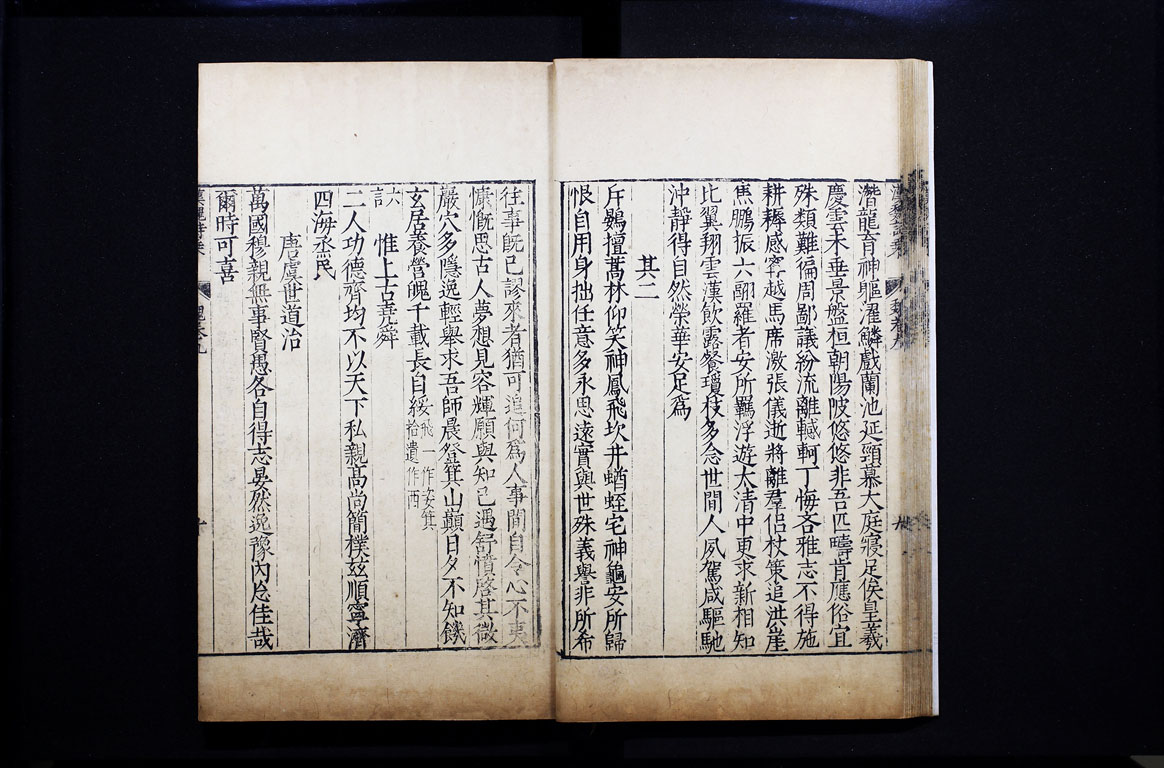 潛龍育神軀濯鱗戲蘭池延頸慕大庭寢足俟皇羲
慶雲未垂景盤桓朝陽陂悠悠非吾匹疇肯應俗宜
殊類難徧周鄙議紛流離轗軻丁悔吝雅志不得施
耕耨感甯越馬席激張儀逝將離羣侶杖策追洪崖
焦鵬振六翮羅者安所羈浮遊太清中更求新相知
比翼翔雲漢飲露餐瓊枝多念世間人夙駕咸驅馳
沖靜得自然榮華安足爲
其二
斥鷃擅蒿林仰笑神鳳飛坎井蝤蛭宅神龜安所歸
恨自用身拙任意多永思遠實與世殊義譽非所希
往事旣已謬來者猶可追何爲人事間自令心不夷
慷慨思古人夢想見容輝願與知己遇舒憤啓其微
巖穴多隱逸輕舉求吾師晨登箕山巔日夕不知饑
玄居養營魄千載長自綏飛一作安箕
拾遺作西
六言
惟上古堯舜
二人功德齊均不以天下私親高尚簡樸茲順寧濟
四海烝民
唐虞世道治
萬國穆親無事賢愚各自得志晏然逸豫內忘佳哉
爾時可喜